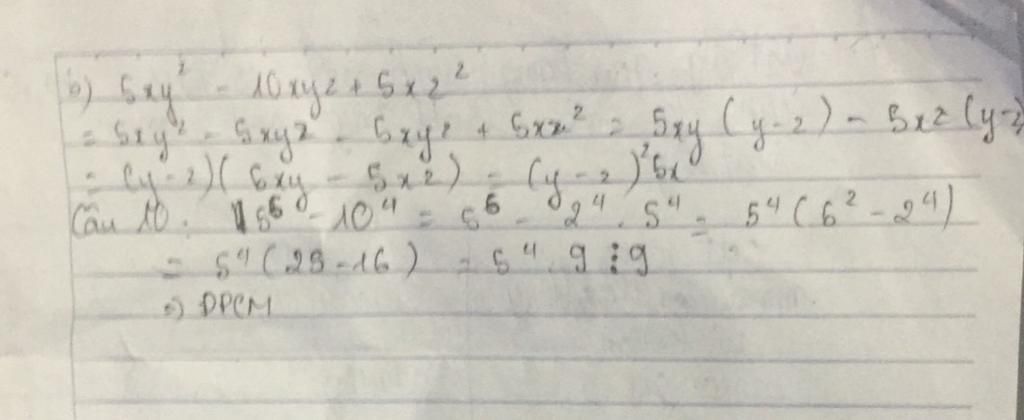 b) 5xy² - 10xyz + 5xz²
= 5xy² - 5xyz - 5xyz + 5xz² = 5xy (y-z) - 5xz (y-z)
= (y-z)(5xy - 5xz) = (y-z)²5x
Câu 10. 5⁶ - 10⁴ = 5⁶ - 2⁴ . 5⁴ = 5⁴ (5² - 2⁴)
= 5⁴ (25 - 16) = 5⁴ . 9 ⋮ 9
=) ĐPCM